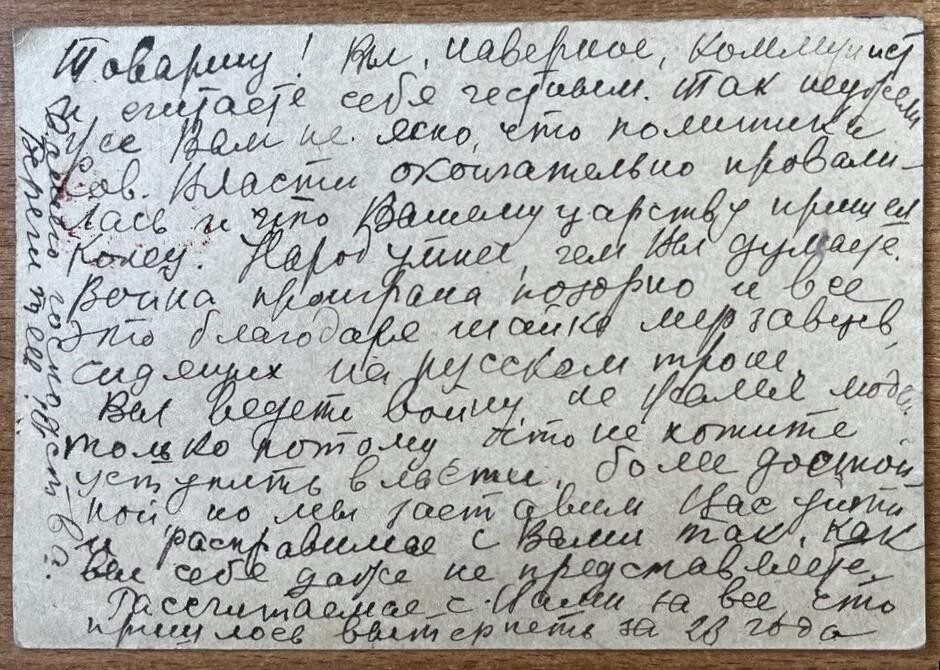 Товарищ! Вы, наверное, коммунист
и считаете себя честным. Так неужели
уже Вам не ясно, что политика
Сов. Власти окончательно провали-
лась и что Вашему царству пришел
конец. Народ умнее, чем Вы думаете.
Война проиграна позорно и все
это благодаря шайке мерзавцев,
сидящих на русском троне.
Вы ведете войну не жалея людей,
только потому что не хотите
уступить власти, более достой
ной но мы заставим Вас уйти
и расправимся с Вами так, как
вы себе даже не представляете.
Рассчитаемся с Вами за все, что
пришлось вытерпеть за 23 года
Вашего господства.
Берегитесь